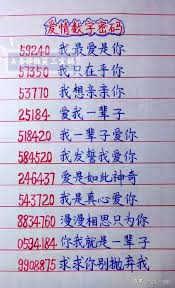 爱情数字密码
59240 我最爱是你
57350 我只在乎你
53770 我想亲亲你
25184 爱我一辈子
518420 我一辈子爱你
584520 我发誓我爱你
246437 爱是如此神奇
543720 我是真心爱你
8834760 漫漫相思只为你
0594184 你我就是一辈子
9908875 求求你别抛弃我